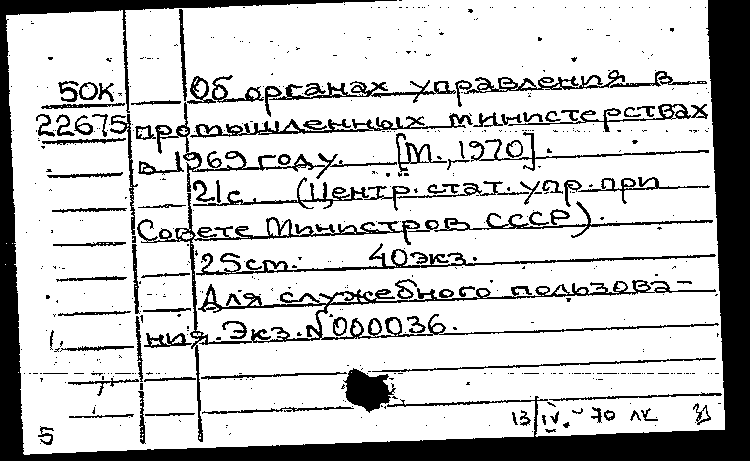 50К Об органах управления в
22675 промышленных министерствах
в 1969 году. [М., 1970].
21с. (Центр. стат. упр. при
Совете Министров СССР).
25cm. 40экз.
Для служебного пользова-
ния. Экз. №000036.
13/IV.-70 лк
5